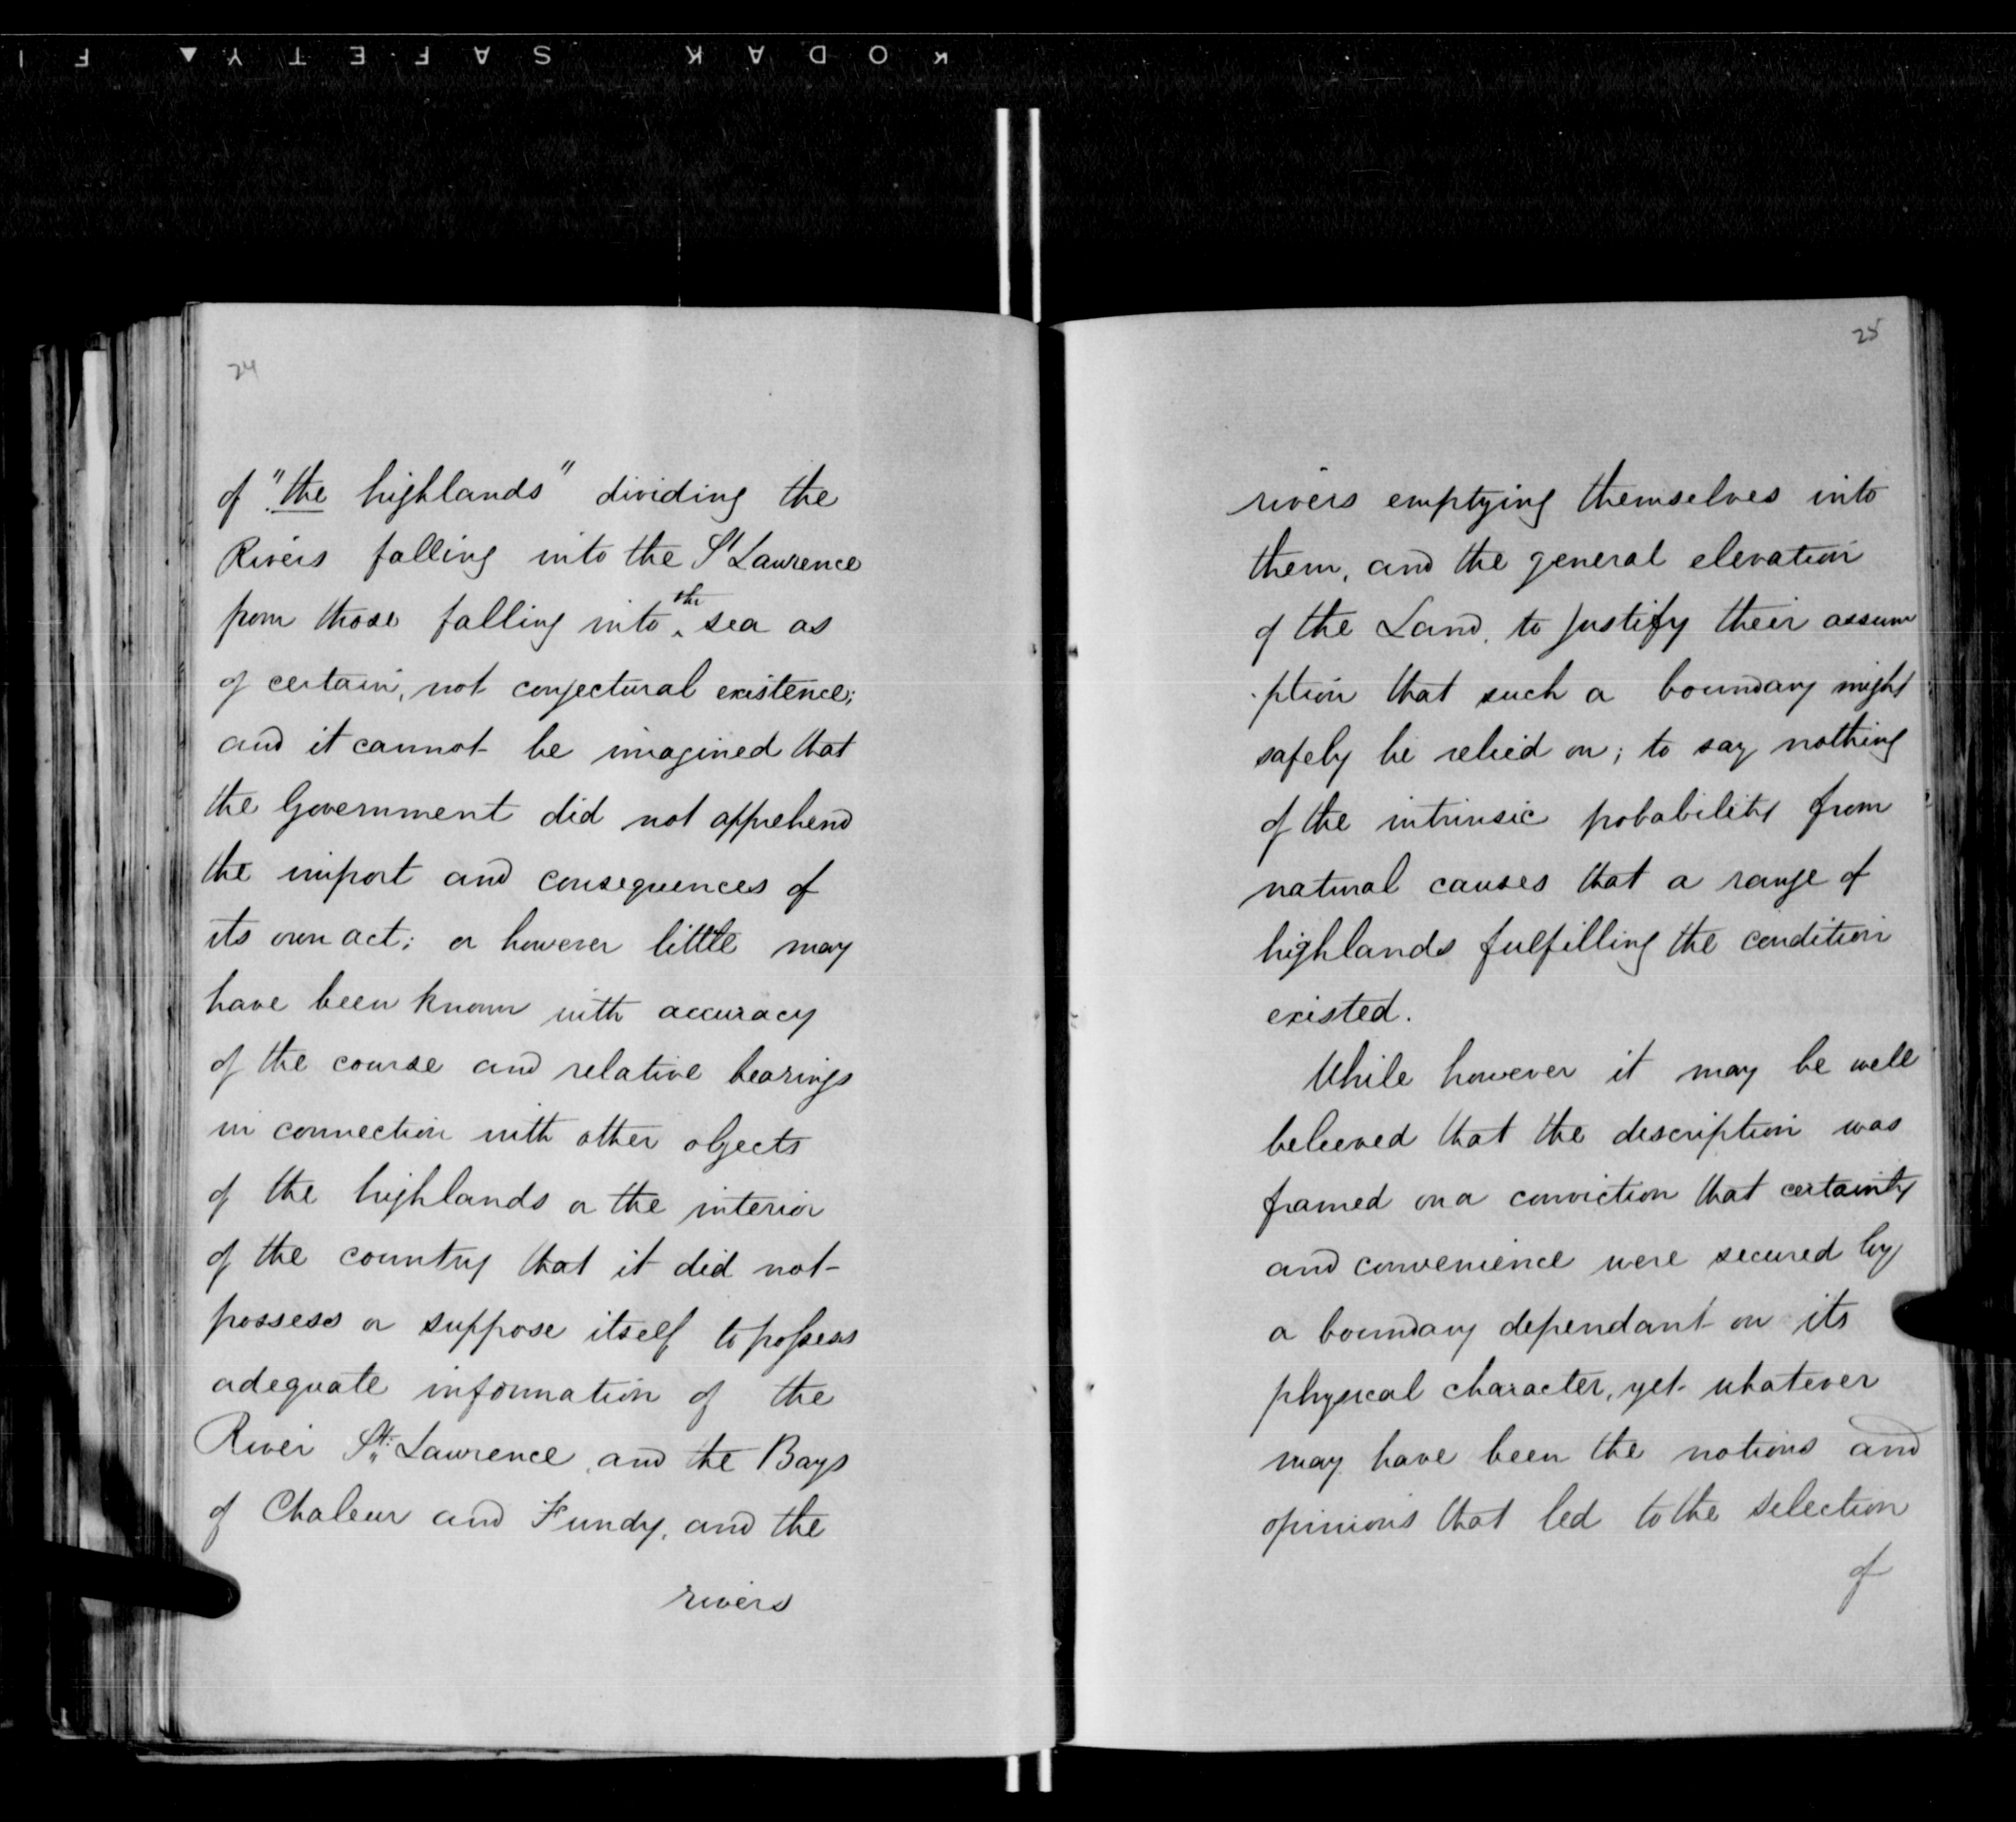 KODAK SAFETY▲ FI
24
of "the highlands" dividing the
Rivers falling into the St Lawrence
from those falling into the sea as
of certain, not conjectural existence;
and it cannot be imagined that
the Government did not apprehend
the import and consequences of
its own act; or however little may
have been known with accuracy
of the course and relative bearings
in connection with other objects
of the highlands or the interior
of the country that it did not
possess or suppose itself to possess
adequate information of the
River St. Lawrence, and the Bays
of Chaleur and Fundy, and the
rivers
25
rivers emptying themselves into
them, and the general elevation
of the Land, to justify their assum
-ption that such a boundary might
safely be relied on; to say nothing
of the intrinsic probability from
natural causes that a range of
highlands fulfilling the condition
existed.
While however it may be well
beleeved that the description was
framed on a conviction that certainty
and convenience were secured by
a boundary dependant on its
physical character, yet whatever
may have been the notions and
opinions that led to the selection
of